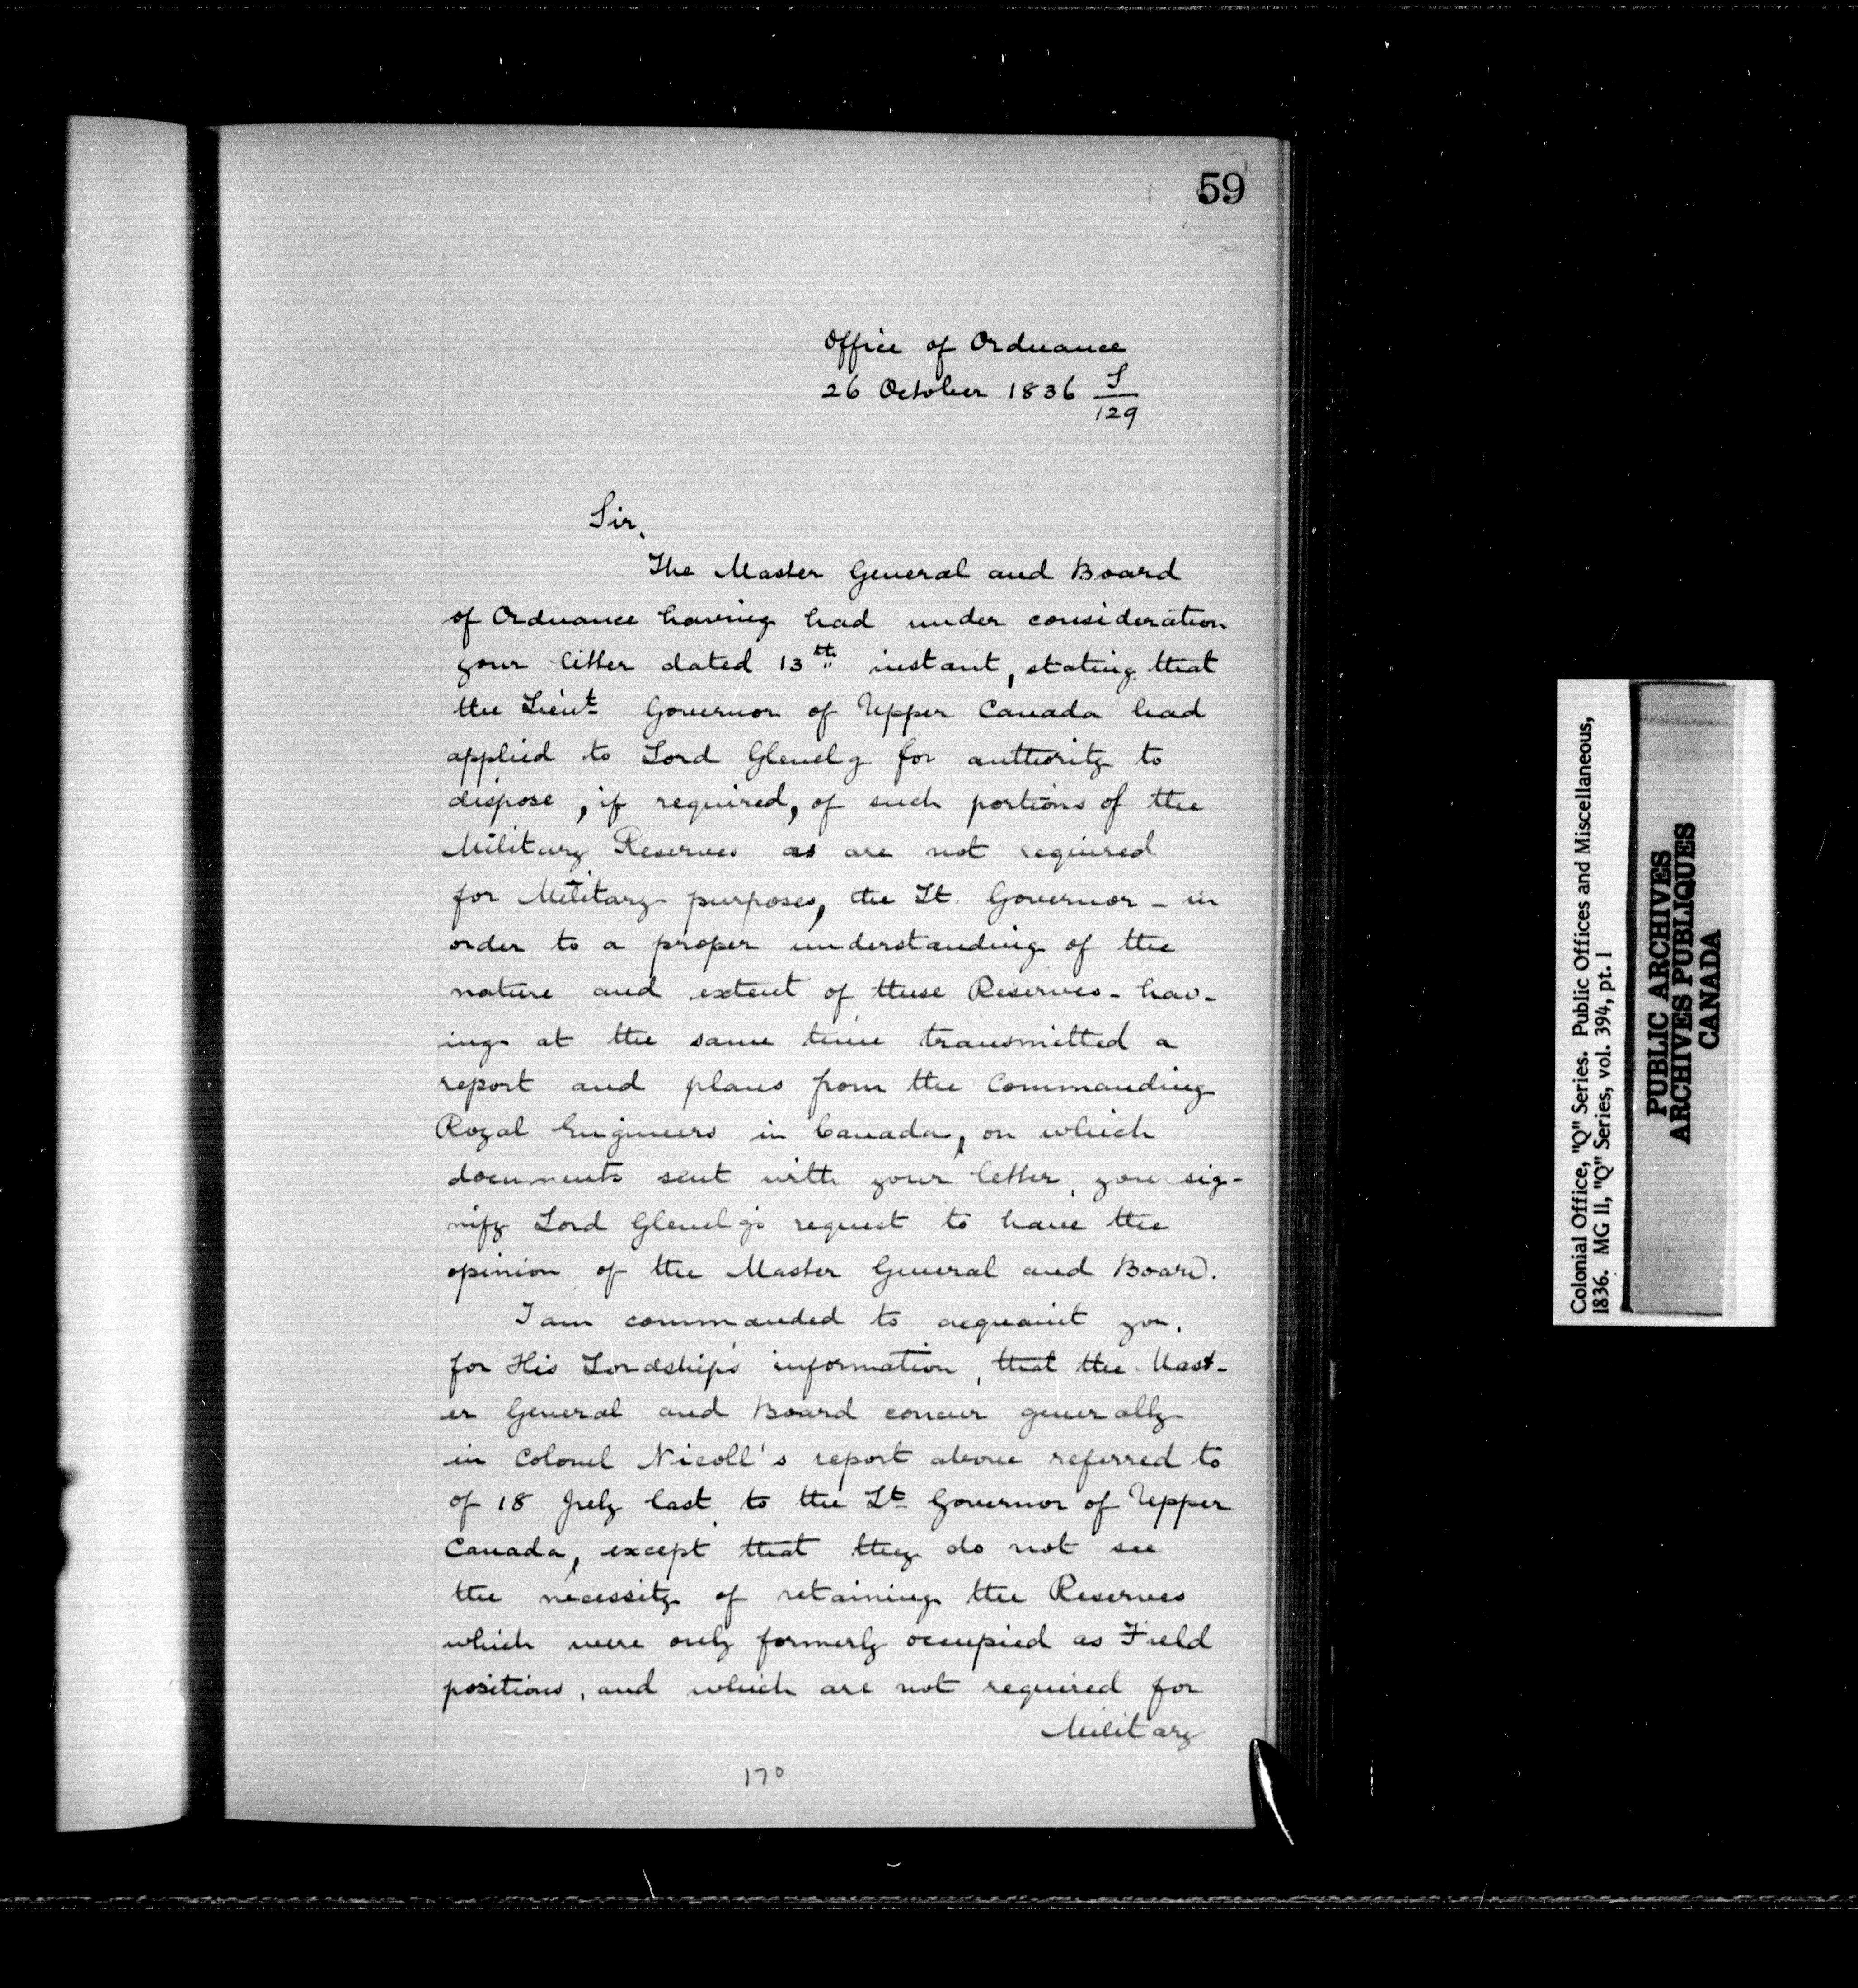 59
Office of Ordnance
26 October 1836 S/129
Sir,
The Master General and Board
of Ordnance having had under consideration
your letter dated 13th instant, stating that
the Lieut Governor of Upper Canada had
applied to Lord Glenelg for authority to
dispose, if required, of such portions of the
Military Reserves as are not required
for Military purposes, the Lt. Governor - in
order to a proper understanding of the
nature and extent of these Reserves - hav-
ing at the same time transmitted a
report and plans from the Commanding
Royal Engineers in Canada, on which
documents sent with your letter, you sig-
nify Lord Glenelg's request to have the
opinion of the Master General and Board.
I am commanded to acquaint you,
for His Lordship's information, that the Mast-
er General and Board concur generally
in Colonel Nicoll's report above referred to
of 18 July last to the Lt Governor of Upper
Canada, except that they do not see
the necessity of retaining the Reserves
which were only formerly occupied as Field
positions, and which are not required for
Military
170
Colonial Office, "Q" Series. Public Offices and Miscellaneous,
1836. MG 11, "Q" Series, vol. 394, pt. 1
PUBLIC ARCHIVES
ARCHIVES PUBLIQUES
CANADA